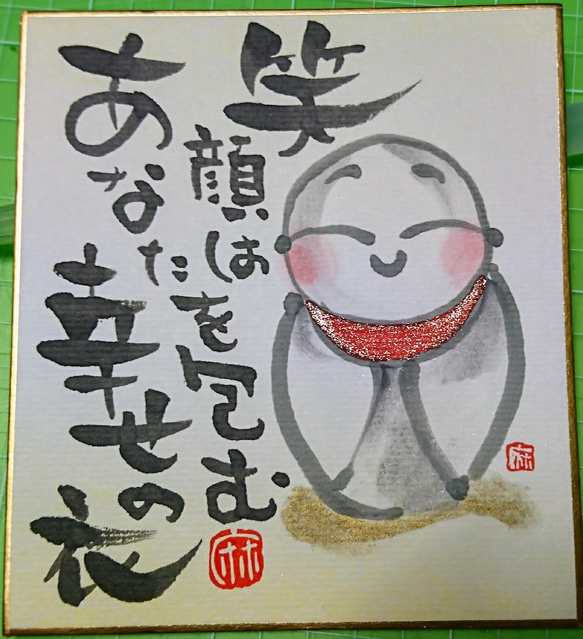 笑顔は
あなたを包む
幸せの衣